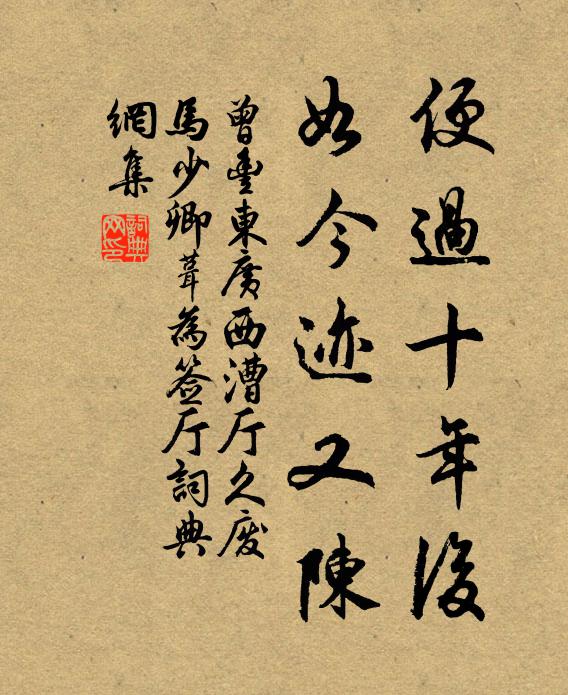 便過十年後
如今迹又陳
曾豐東廣西漕厅久废
馬少卿葺為签厅詞典
網集
詞典网印